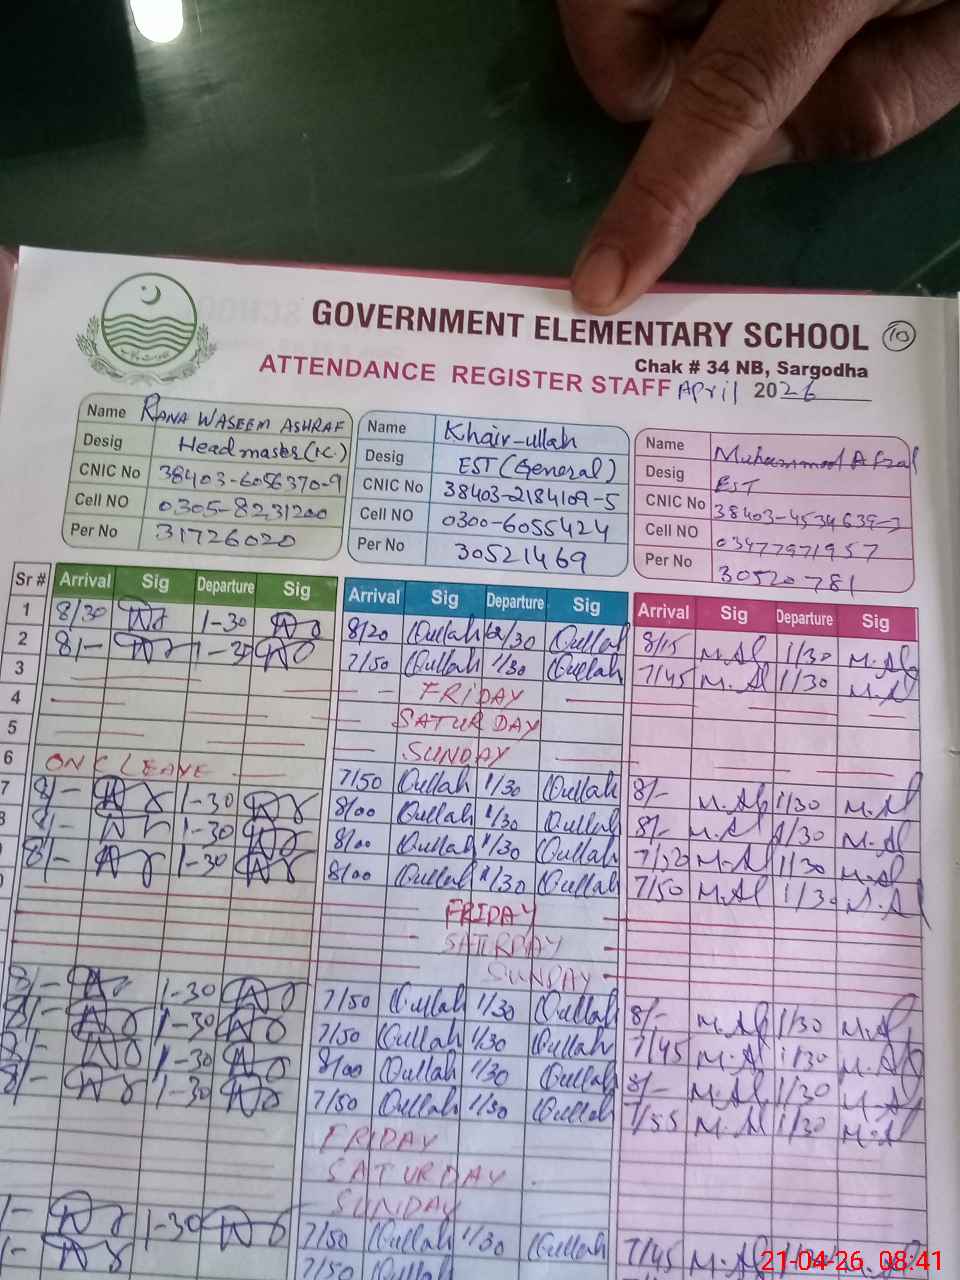 GOVERNMENT ELEMENTARY SCHOOL 10
Chak # 34 NB, Sargodha
ATTENDANCE REGISTER STAFF April 2026
Name RANA WASEEM ASHRAF
Desig Head master
CNIC No 38403-6056370-9
Cell NO 0305-8231200
Per No 31726020
Name Khair-ullah
Desig EST (General)
CNIC No 38403-2184109-5
Cell NO 0300-6055424
Per No 30521469
Name Muhammad Afzal
Desig EST
CNIC No 38403-4534639-
Cell NO 03477971957
Per No 30520781
Sr # Arrival Sig Departure Sig Arrival Sig Departure Sig Arrival Sig Departure Sig
1 8/30 1-30 8/20 Qullah /30 Qullah 8/15 M.Al 1/30 M.Al
2 8/- 1-30 7/50 Qullah 1/30 Qullah 7/45 M.Al 1/30 M.Al
3 FRIDAY
4 SATURDAY
5 SUNDAY
6 ON C LEAVE 7/50 Qullah 1/30 Qullah 8/- M.Al 1/30 M.Al
7 8/- 1-30 8/00 Qullah 1/30 Qullah 8/- M.Al 1/30 M.Al
8/- 1-30 8/00 Qullah 1/30 Qullah M.Al 1/30 M.Al
8/- 1-30 8/00 Qullah 1/30 Qullah 7/50 M.Al 1/30 M.Al
FRIDAY
SATURDAY
SUNDAY
8/- 1-30 7/50 Qullah 1/30 Qullah 8/- M.Al 1/30 M.Al
8/- 1-30 7/50 Qullah 1/30 Qullah 7/45 M.Al 1/30 M.Al
8/- 1-30 8/00 Qullah 1/30 Qullah 8/- M.Al 1/30 M.Al
8/- 1-30 7/50 Qullah 1/30 Qullah 7/55 M.Al 1/30 M.Al
FRIDAY
SATURDAY
SUNDAY
1-30 7/50 Qullah 1/30 Qullah 7/45 M.Al
7/50 Qullah
21-04-26 08:41